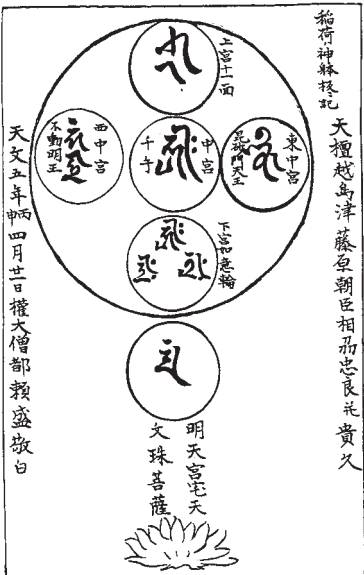 稲荷神躰柊記
大檀越島津藤原朝臣相刕忠良并貴久
上宮十一面
東中宮
毘沙門天王
中宮
千手
西中宮
不動明王
下宮如意輪
明天宮宅天
文珠菩薩
天文五年丙申四月廿一日權大僧都頼盛敬白